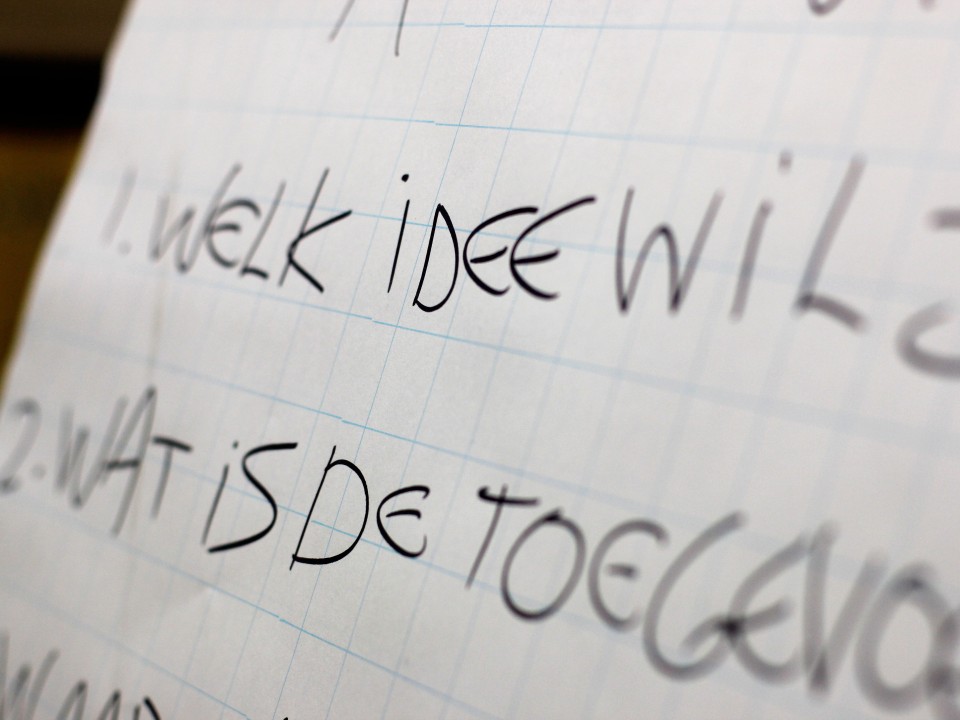 1. WELK iDEE WiL
2. WAT iS DE TOEGEVO